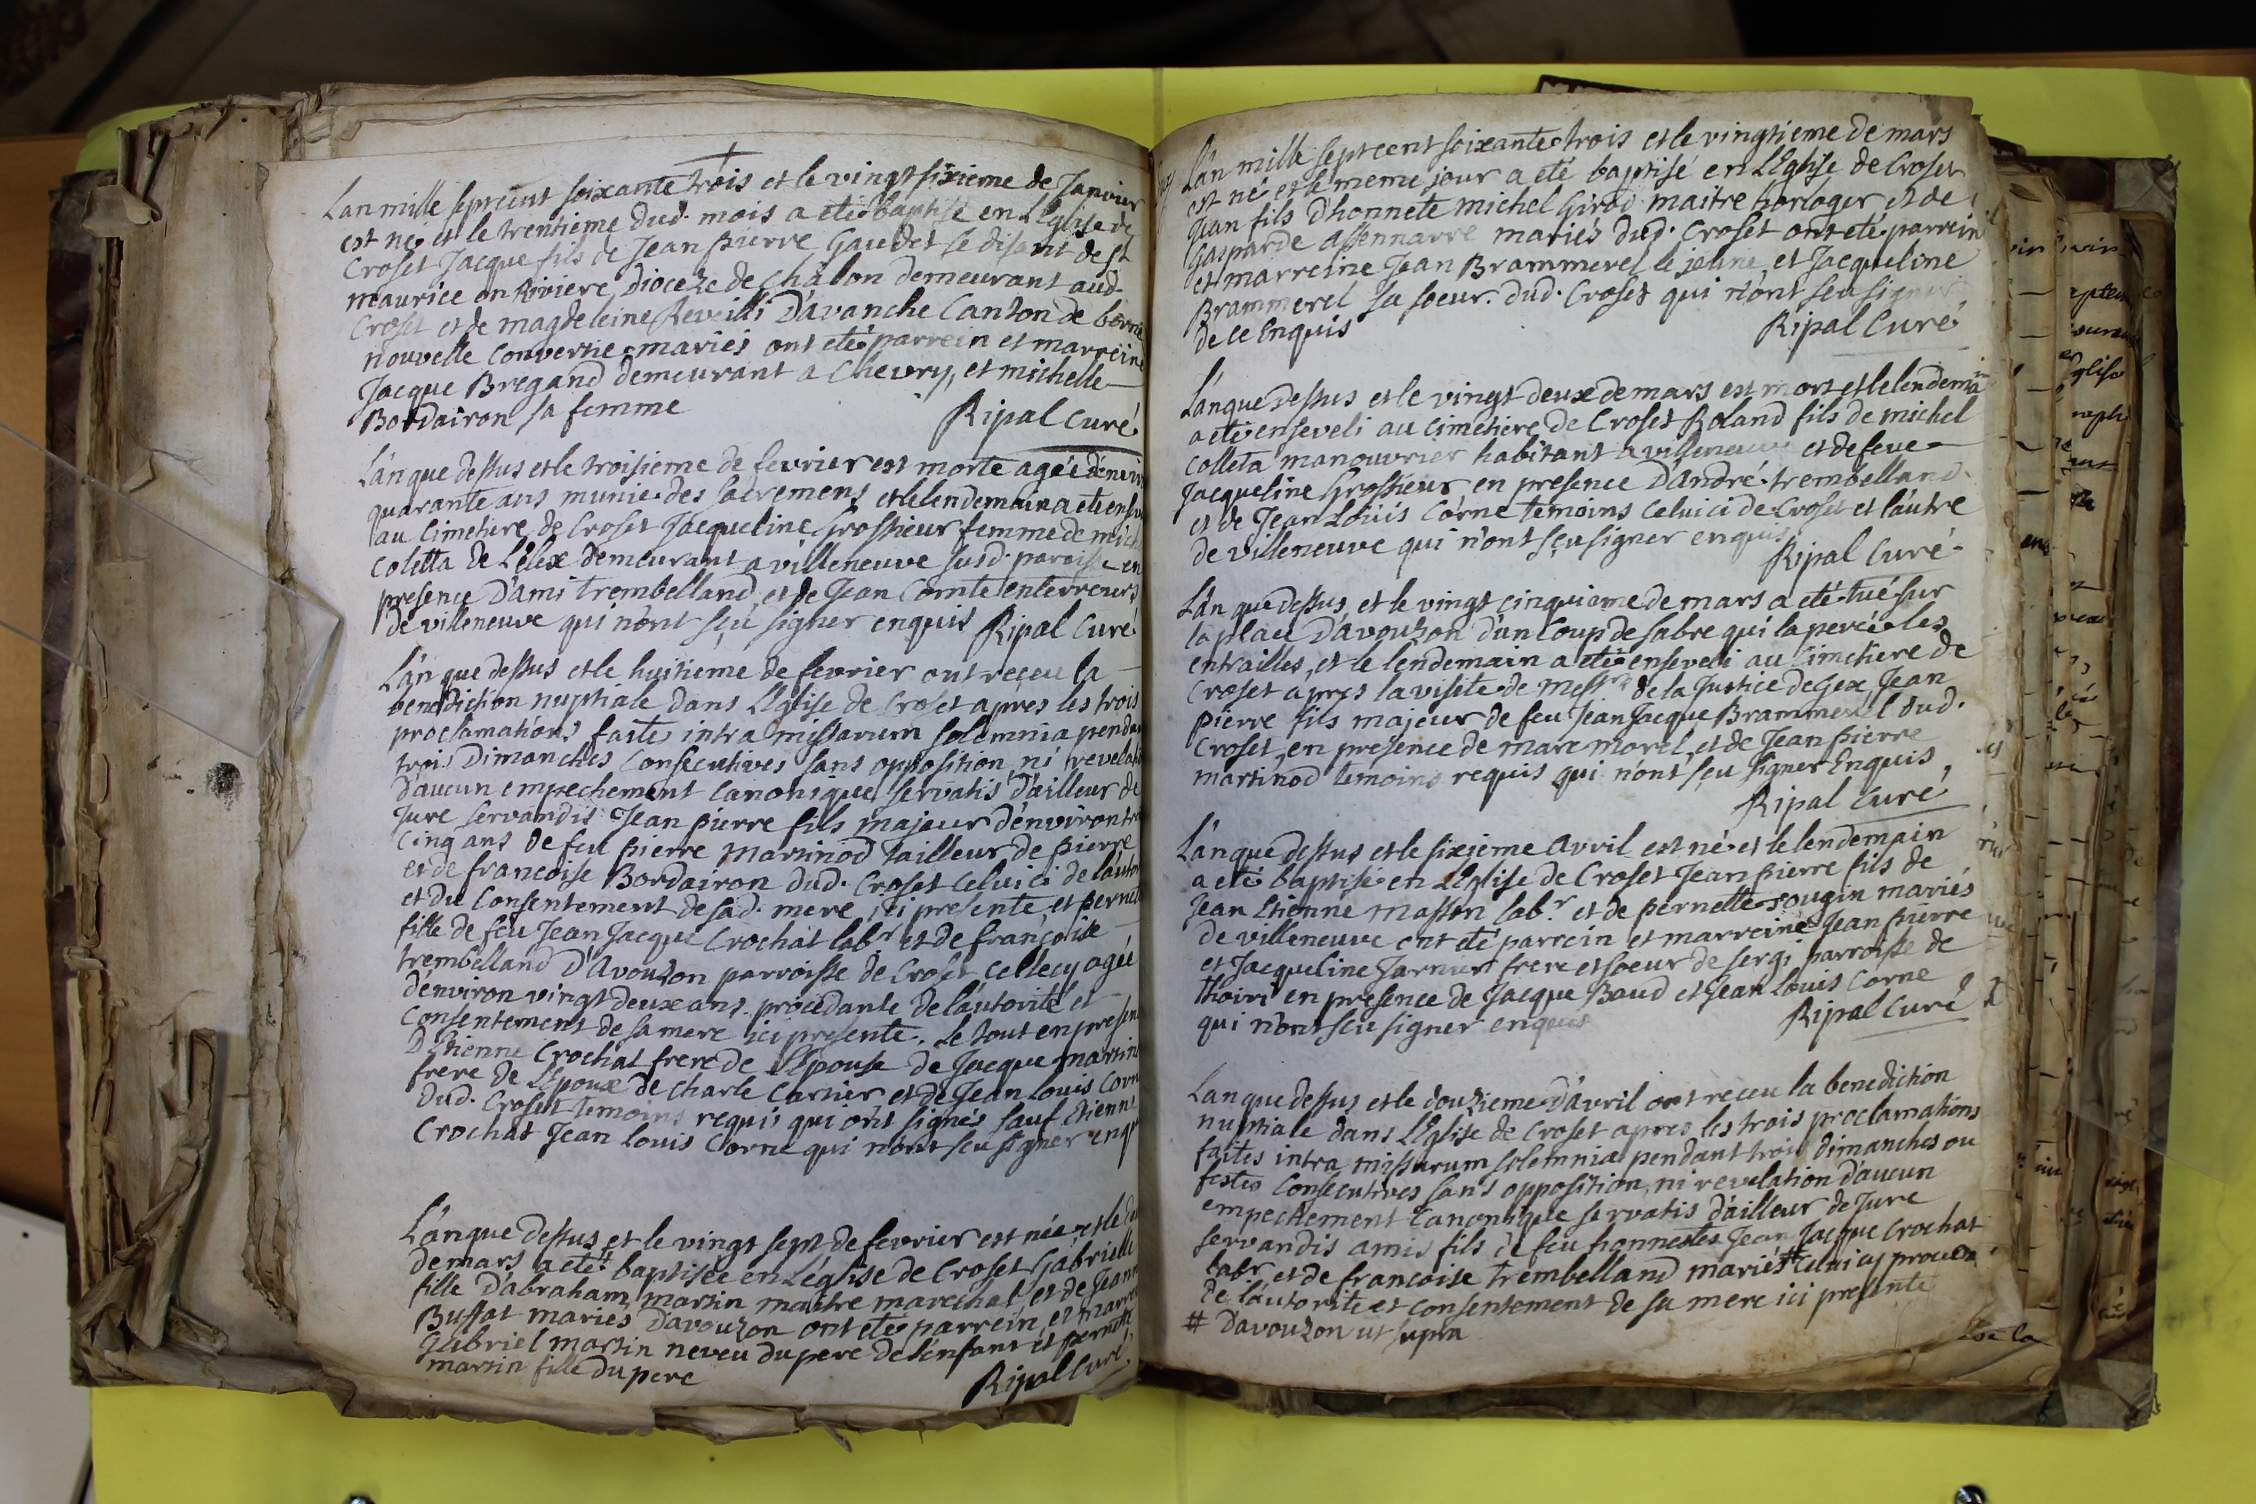 L'an mille septcent soixante trois et le vingt sixieme de Janvier
est né et le trentieme dud. mois a eté baptisé en L'Eglise de
Croset Jacque fils de Jean pierre Gaudet se disant de St
maurice en Riviere Dioceze de Châlon demeurant aud.
Croset et de magdeleine Reveilli D'avanche Canton de berne
nouvelle Convertie mariés ont eté parrein et marreine
Jacque Bregand demeurant a Chevry, et michelle
Bordairon sa femme
Ripal Curé
L'an que dessus et le troisieme de fevrier est morte agée d'envir
quarante ans munie des sacremens et le lendemain a eté ens
au Cimetiere de Croset Jacqueline Grossieur femme de mich
Coletta de Lélex demeurant a villeneuve susd. paroisse en
presence D'ami trembelland et de Jean Comte enterreurs
de villeneuve qui n'ont sçu signer enquis Ripal Curé
L'an que dessus et le huitieme de fevrier ont receu la
benediction nuptiale dans L'Eglise de Croset après les trois
proclamations faites intra missarum solemnia pendan
trois Dimanches Consecutives sans opposition, ni revelati
d'aucun empechement canonique servatis d'ailleur de
Jure servandis Jean pierre fils majeur d'environ tre
Cinq ans de feu pierre Martinod Tailleur de pierre
et de francoise Bordairon dud. Croset celui ci de l'autor
et du Consentement de sad. mere ici presente, et pernet
fille de feu Jean Jacque Crochat labr. et de francoise
trembelland D'Avouzon parroisse de Croset Cellecy agée
d'environ vingt deux ans procedante de l'autorité et
Consentement de sa mere ici presente. Le tout en presen
D'Etienne Crochat frere de L'Epouse de Jacque martin
frere de L'Epoux de charle Cartier et de Jean Louis Corn
Dud. Croset temoins requis qui ont signés sauf Etienne
Crochat Jean Louis Corne qui n'ont sçu signer enqu
L'an que dessus et le vingt sept de fevrier est née et le
de mars a eté baptisée en L'église de Croset Gabrielle
fille D'abraham martin maitre marechal, et de Jeann
Buffat mariés D'avouzon ont eté parrein et marre
Gabriel martin neveu du pere de l'enfant et pernette
martin fille du pere
Ripal Curé
L'an mille septcent soixante trois et le vingtieme de mars
est né et le meme jour a eté baptisé en L'Eglise de Croset
Jean fils D'honnete michel Girod maitre horloger et de
Gasparde Assennarre mariés dud. Croset ont eté parrein
et marreine Jean Brammerel le jeune, et Jacqueline
Brammerel sa soeur. dud. Croset qui n'ont sçu signer
de ce Enquis
Ripal Curé
L'an que Dessus et le vingt deux de mars est mort et le lendemain
a eté enseveli au Cimetiere de Croset Roland fils de michel
Colleta manouvrier habitant a villeneuve et de feue
Jacqueline Grossieur en presence D'andré trembelland
et de Jean Louis Corne temoins Celui ci de Croset et l'autre
de villeneuve qui n'ont sçu signer enquis
Ripal Curé
L'an que dessus, et le vingt cinquieme de mars a eté tué sur
la place D'avouzon d'un Coup de sabre qui la percé les
entrailles, et le lendemain a eté enseveli au Cimetiere de
Croset apres la visite de Messrs de la Justice de Gex, Jean
pierre fils majeur de feu Jean Jacque Brammerel dud.
Croset, en presence de marc morel, et de Jean pierre
martinod temoins requis qui n'ont sçu signer Enquis
Ripal Curé
L'an que dessus et le sixieme Avril est né et le lendemain
a eté baptisé en L'Eglise de Croset Jean pierre fils de
Jean Etienne Masson labr. et de pernette rougin mariés
de villeneuve ont eté parrein et marreine Jean pierre
et Jacqueline Jarnier frere et soeur de sergi parroisse de
thoiri en presence de Jacque Baud et Jean Louis Corne
qui n'ont sçu signer enquis
Ripal Curé
L'an que dessus et le douzieme d'avril ont receu la benediction
nuptiale dans L'Eglise de Croset apres les trois proclamations
faites intra missarum solemnia pendant trois dimanches ou
festes Consecutives sans opposition, ni revelation d'aucun
empechement Canonique servatis d'ailleur de Jure
servandis amis fils de feu honnestes Jean Jacque Crochat
labr et de francoise trembelland mariés # Celui cy proced
de l'autorité et Consentement de sa mere ici presente
# D'avouzon ut supra